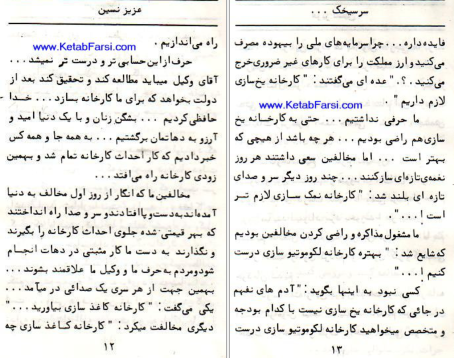 عزیز نسین
راه می‌اندازیم .
www.KetabFarsi.com
حرف از این حسابی تر و درست تر نمیشد...
آقای وکیل میباید مطالعه کند و تحقیق کند بعد از
دولت بخواهد که برای ما کارخانه بسازد... خدا
حافظی کردیم ... بشگن زنان و با یک دنیا امید و
آرزو به دهاتمان برگشتیم ... به همه جا و همه کس
خبر دادیم که کار احداث کارخانه تمام شد و بهمین
زودی کارخانه راه می‌افتد ...
مخالفین ما که انگار از روز اول مخالف به دنیا
آمده‌اند به دست و پا افتادند و سر و صدا راه انداختند
که بهر قیمتی شده جلوی احداث کارخانه را بگیرند
و نگذارند به دست ما کار مثبتی در دهات انجام
شود و مردم به حرف ما و وکیل ما علاقمند بشوند ...
بهمین جهت از هر سری یک صدائی در میآمد...
یکی می‌گفت : " کارخانه کاغذ سازی بیاورید ... "
دیگری مخالفت میکرد : " کارخانه کاغذ سازی چه
۱۲
سرسیخک ...
فایده داره... چرا سرمایه‌های ملی را بیهوده مصرف
می‌کنید و ارز مملکت را برای کارهای غیر ضروری خرج
می‌کنید . ؟ . " عده ای می‌گفتند : " کارخانه یخ‌سازی
لازم داریم " .
www.KetabFarsi.com
ما حرفی نداشتیم ... حتی به کارخانه یخ
سازی هم راضی بودیم ... هر چه باشد از هیچی که
بهتر است ... اما مخالفین سعی داشتند هر روز
نغمه‌ی تازه‌ای سازکنند... چند روز دیگر سر و صدای
تازه ای بلند شد : " کارخانه نمک سازی لازم تر
است ! ... " .
ما مشغول مذاکره و راضی کردن مخالفین بودیم
که شایع شد : " بهتره کارخانه لکوموتیو سازی درست
کنیم ! ... "
کسی نبود به اینها بگوید : " آدم های نفهم
در جائی که کارخانه یخ سازی نیست با کدام بودجه
و متخصص میخواهید کارخانه لکوموتیو سازی درست
۱۳